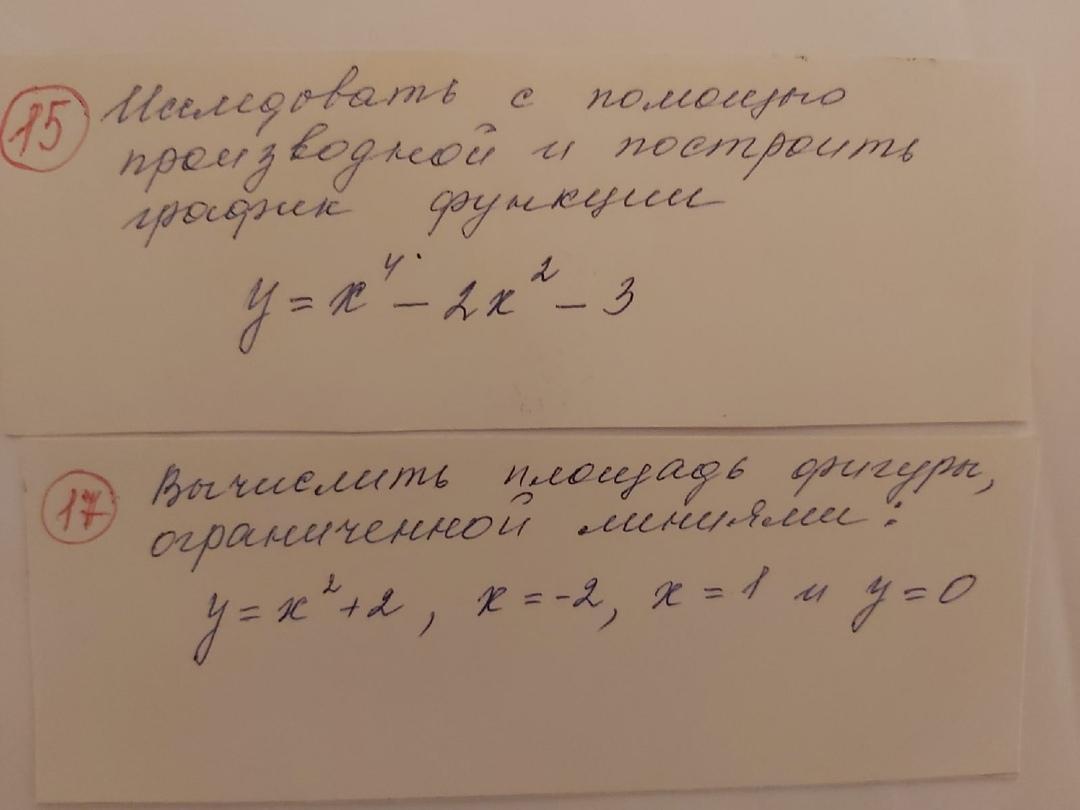 15 Исследовать с помощью
производной и построить
график функции
y = x⁴ - 2x² - 3
17 Вычислить площадь фигуры,
ограниченной линиями:
y = x² + 2, x = -2, x = 1 и y = 0